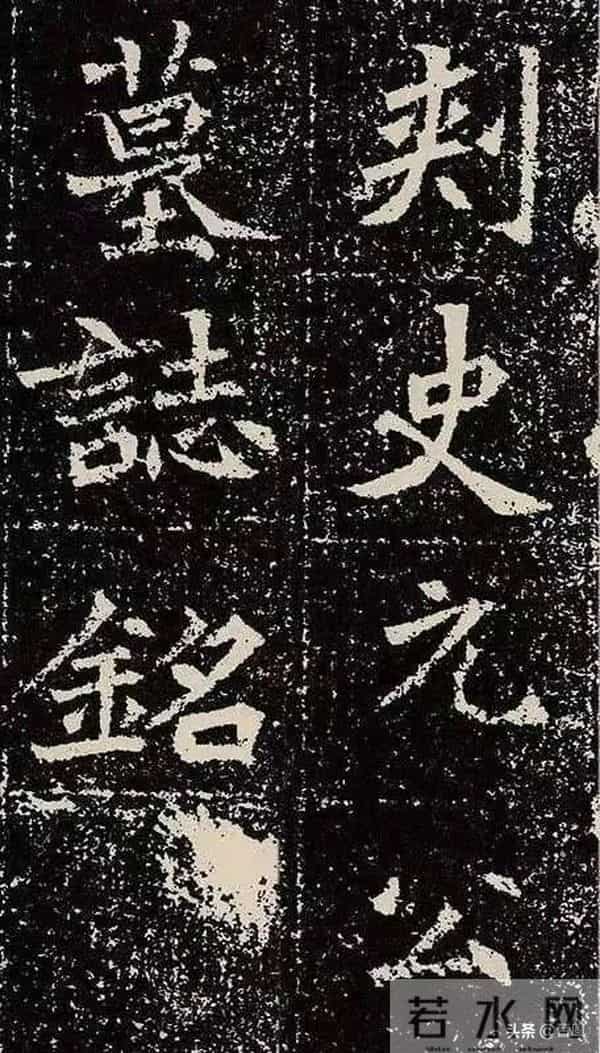 刺史元公
墓誌銘
若水网
头条